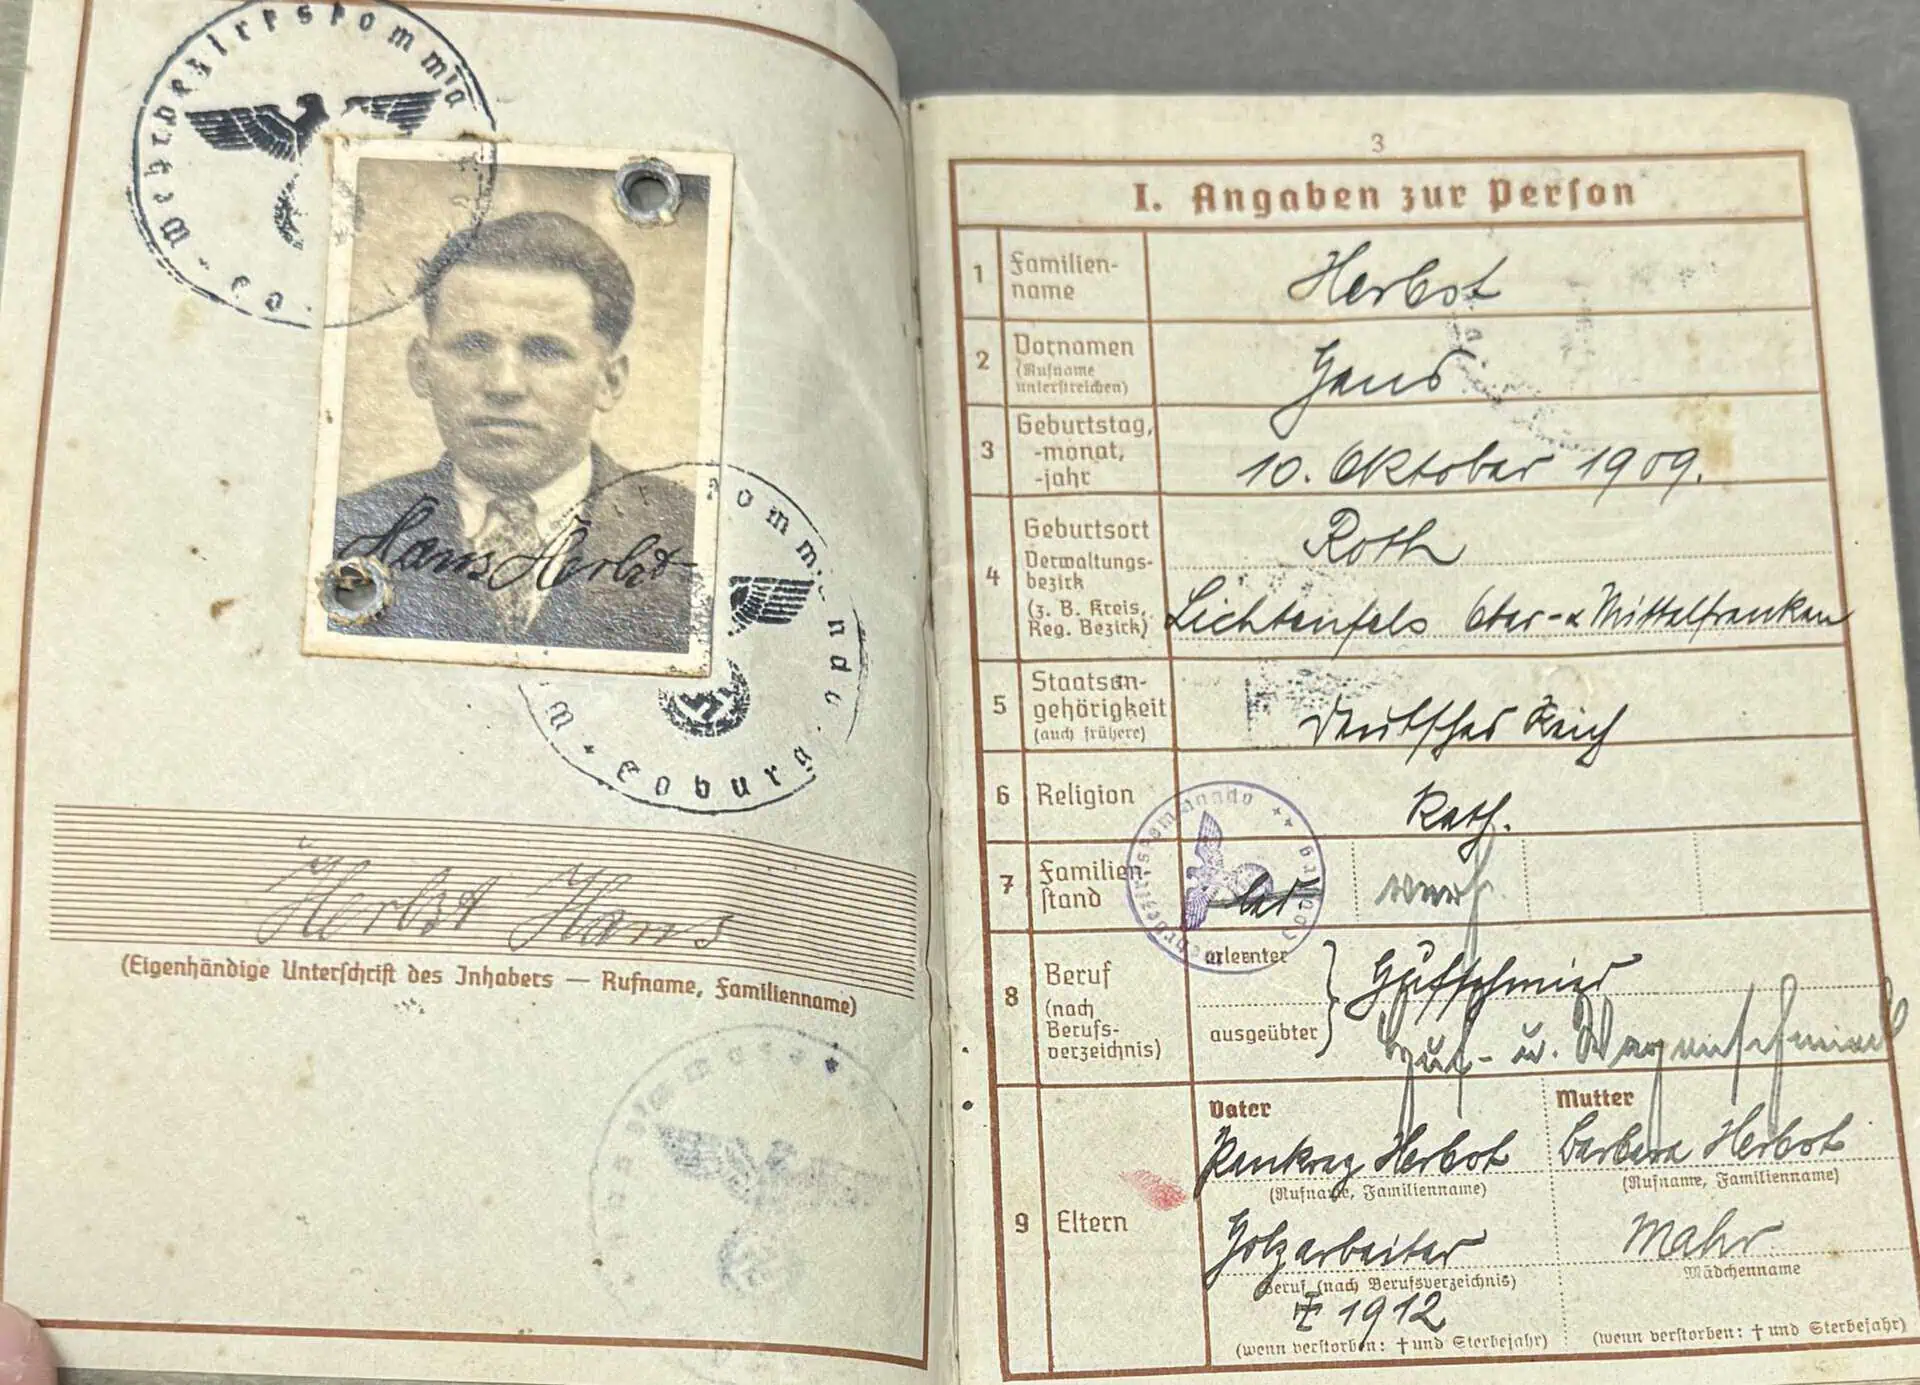 Wehrbezirkskommando
Co
Hans Herbst
Kommando
W * Coburg
Herbst Hans
(Eigenhändige Unterschrift des Inhabers — Rufname, Familienname)
3
I. Angaben zur Person
1 Familien-
name
Herbst
2 Vornamen
(Rufname
unterstreichen)
Hans
3 Geburtstag,
-monat,
-jahr
10. Oktober 1909.
4 Geburtsort
Verwaltungs-
bezirk
(z. B. Kreis,
Reg. Bezirk)
Roth
Lichtenfels Ober- u Mittelfranken
5 Staatsan-
gehörigkeit
(auch frühere)
Deutsches Reich
6 Religion
Kath.
7 Familien-
stand
led. verh.
8 Beruf
(nach
Berufs-
verzeichnis)
erlernter
ausgeübter
Hufschmied
Huf- u. Wagenschmied
9 Eltern
Vater
Pankraz Herbst
(Rufname, Familienname)
Holzarbeiter
Beruf (nach Berufsverzeichnis)
† 1912
(wenn verstorben: † und Sterbejahr)
Mutter
Barbara Herbst
(Rufname, Familienname)
Mahr
Mädchenname
(wenn verstorben: † und Sterbejahr)